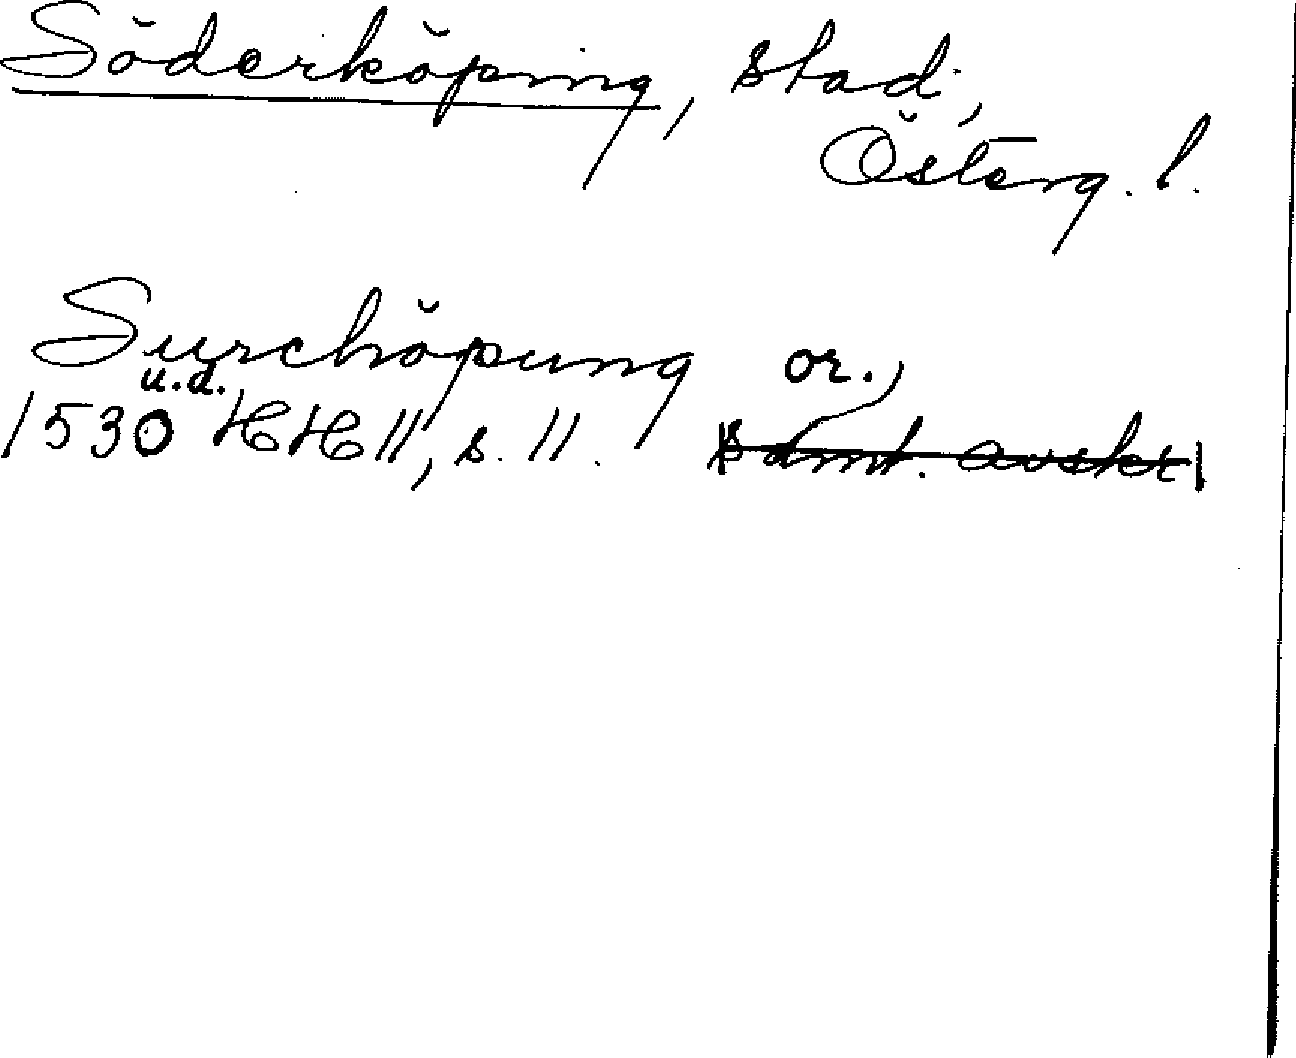 Söderköping, stad,
Österg. l.
Surchöpung or.,
u.d.
1530 HH 11, s. 11. samt. avskr